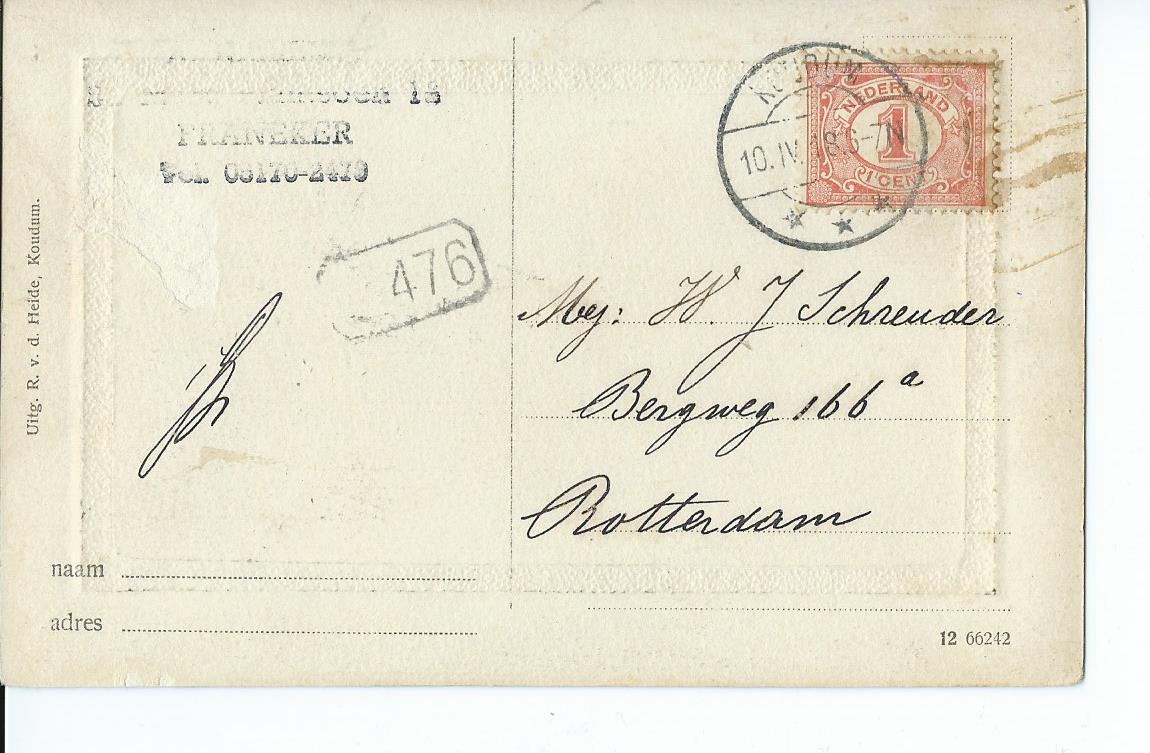 18
FRANEKER
Tel. 05170-2479
476
KOUDUM
10.IV. 8.6-7N
NEDERLAND
1
1 CENT
Mej: W. J Schreuder
Bergweg 166a
Rotterdam
Uitg. R. v. d. Heide, Koudum.
naam
adres
12 66242